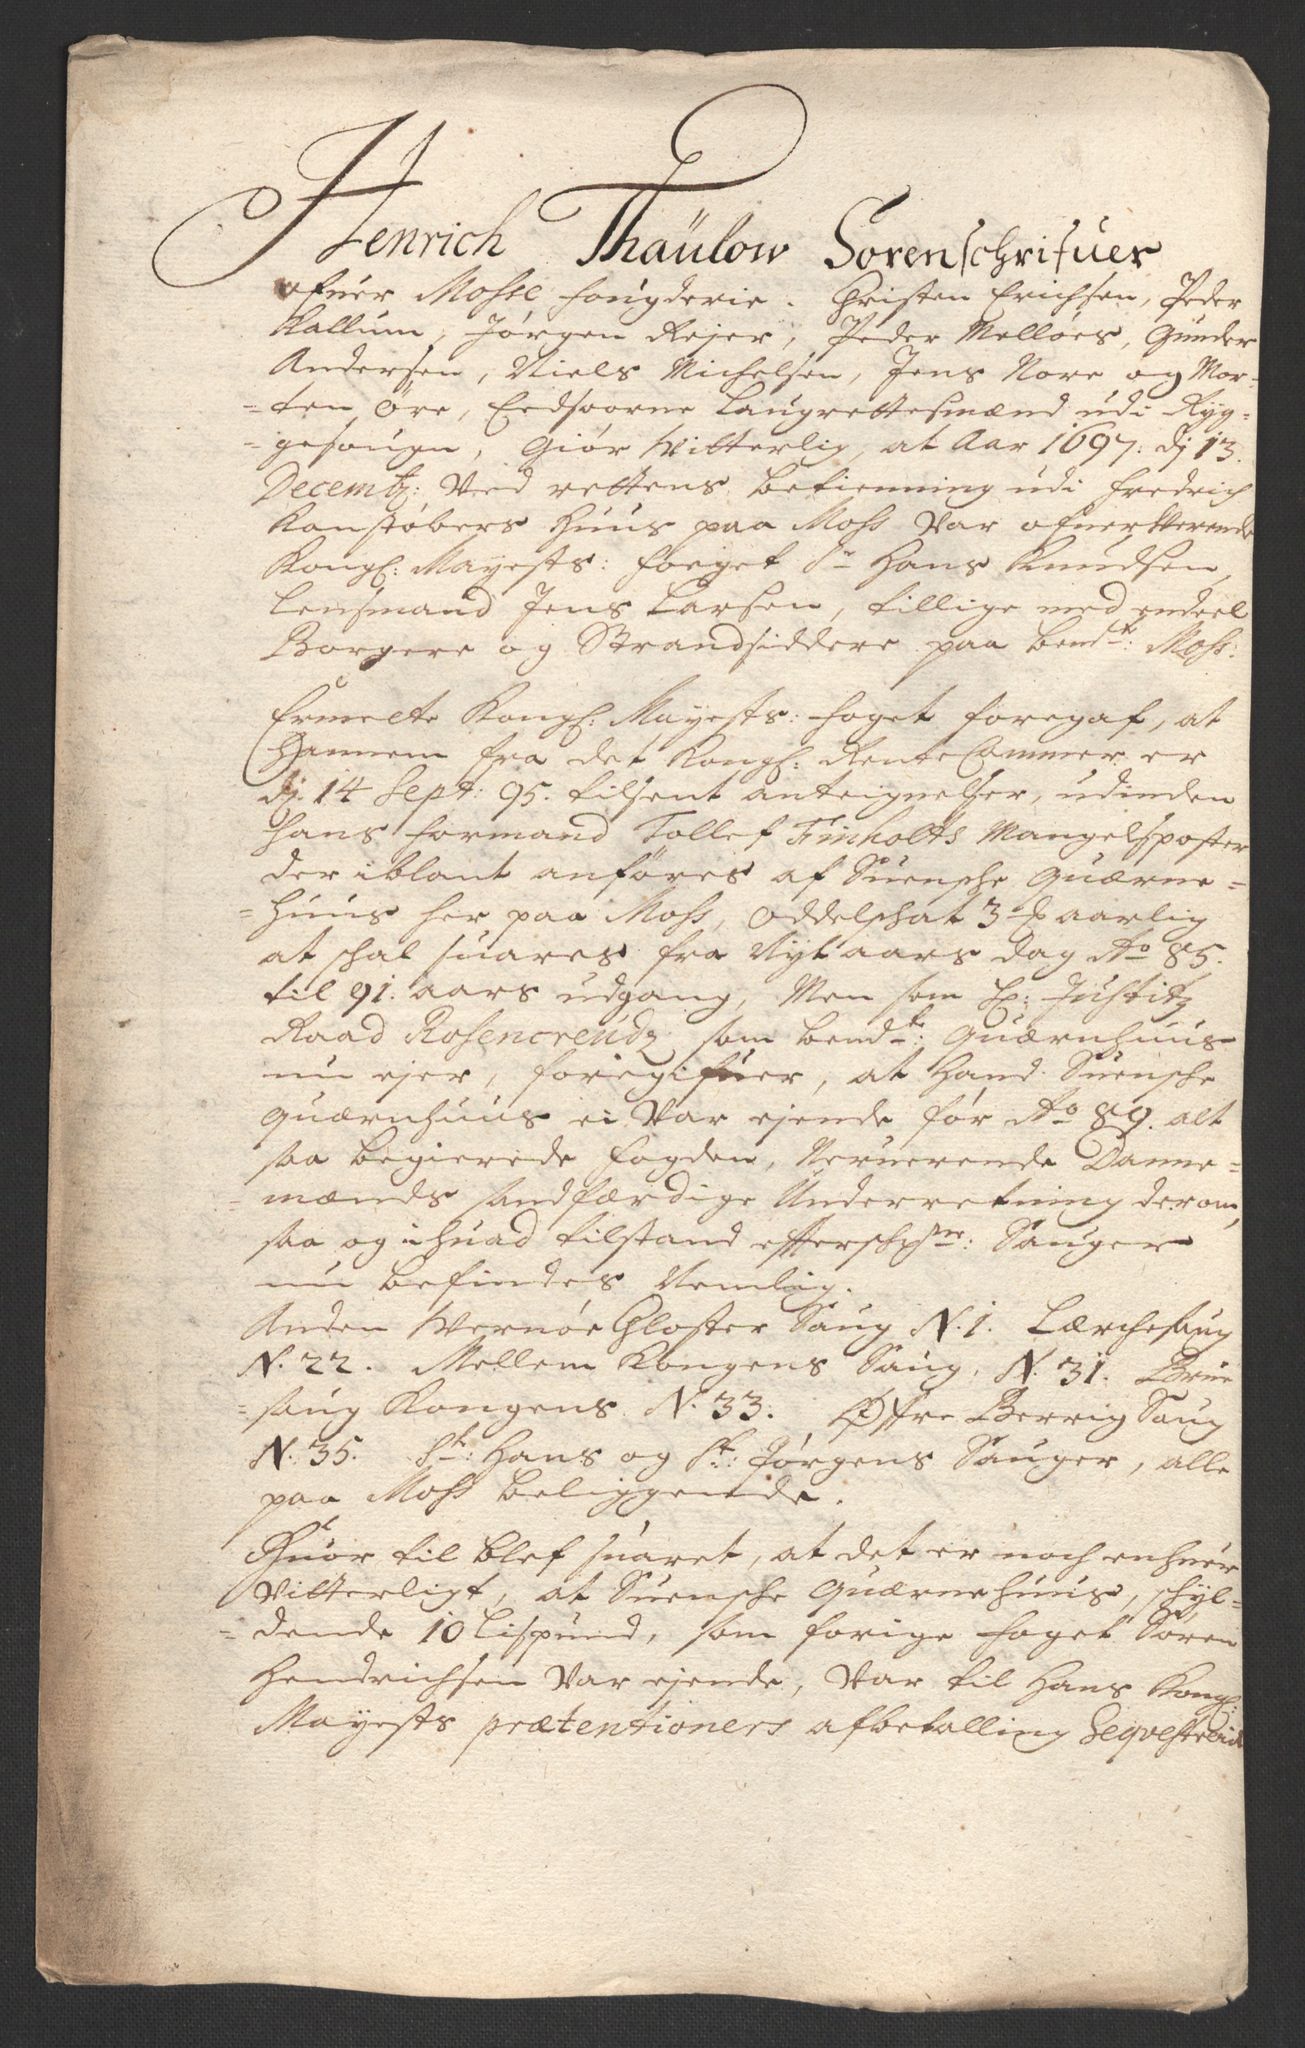 Henrich Thaülow Sorenschrifuer
ofuer Mosse fougderie. Christen Erichsen, Peder
Kallum, Jørgen Rejer, Peder Melløes, Gunder
Andersen, Niels Michelsen, Jens Nore og Mor-
-ten Øre, Eedsvorne Laugrettesmænd udi Ryg-
-gesougn, Giør Witterlig, at Aar 1697. dj 13.
Decembz: Ved rettens betienning udi Fredrich
Kanstøbers Huus paa Moss Var ofuerWerende
Kongl: Mayests: fouget Sr Hans Knudsen,
Lensmand Jens Larsen, tillige med endeel
Borgere og Strandsiddere paa bemte: Moss:
Ermelte Kongl: Mayests: foget foregaf, at
Hannem fra det Kongl: Rente Cammer er
dj. 14 Sept: 95. tilsent anteignelser, udinden
hans formand Tollef Finholts Mangelsposter
der iblant anføres af Suensche Quærne-
-Huus her paa Moss, Oddelschat 3 aarlig
at schal suares fra Nyt aars dag Ao 85.
til 91. aars udgang, Men som Hr: Justitz
Raad Rosencreudz som bemte: Quærnhuus
nu ejer, foregifuer, at Hand Suensche
quærnhuus ei Var ejende før Ao 89. alt
saa begierede fogden, Nerverende Danne-
-mænds sandfærdige Underretning derom,
saa og i huad tilstand efterschrne: Sauger
nu befindes Nemlig.
Anden Wernøe Closter Saug N. 1. Lærchesaug
N. 22. Mellem Kongens Saug, N. 31. Brue
-saug Kongens N. 33. Østre Berrig Saug
N. 35. St: Hans og St: Jørgens Sauger, alle
paa Moss beliggende.
Huor til blef suaret, at det er noch enhuer
Vitterligt, at Suensche Quærnehuus, schyl-
-dende 10 Lispund, som forige foget Søren
Hendrichsen Var ejende, Var til Hans Kongl:
Mayests prætentioners afbetalling Seqvestreid